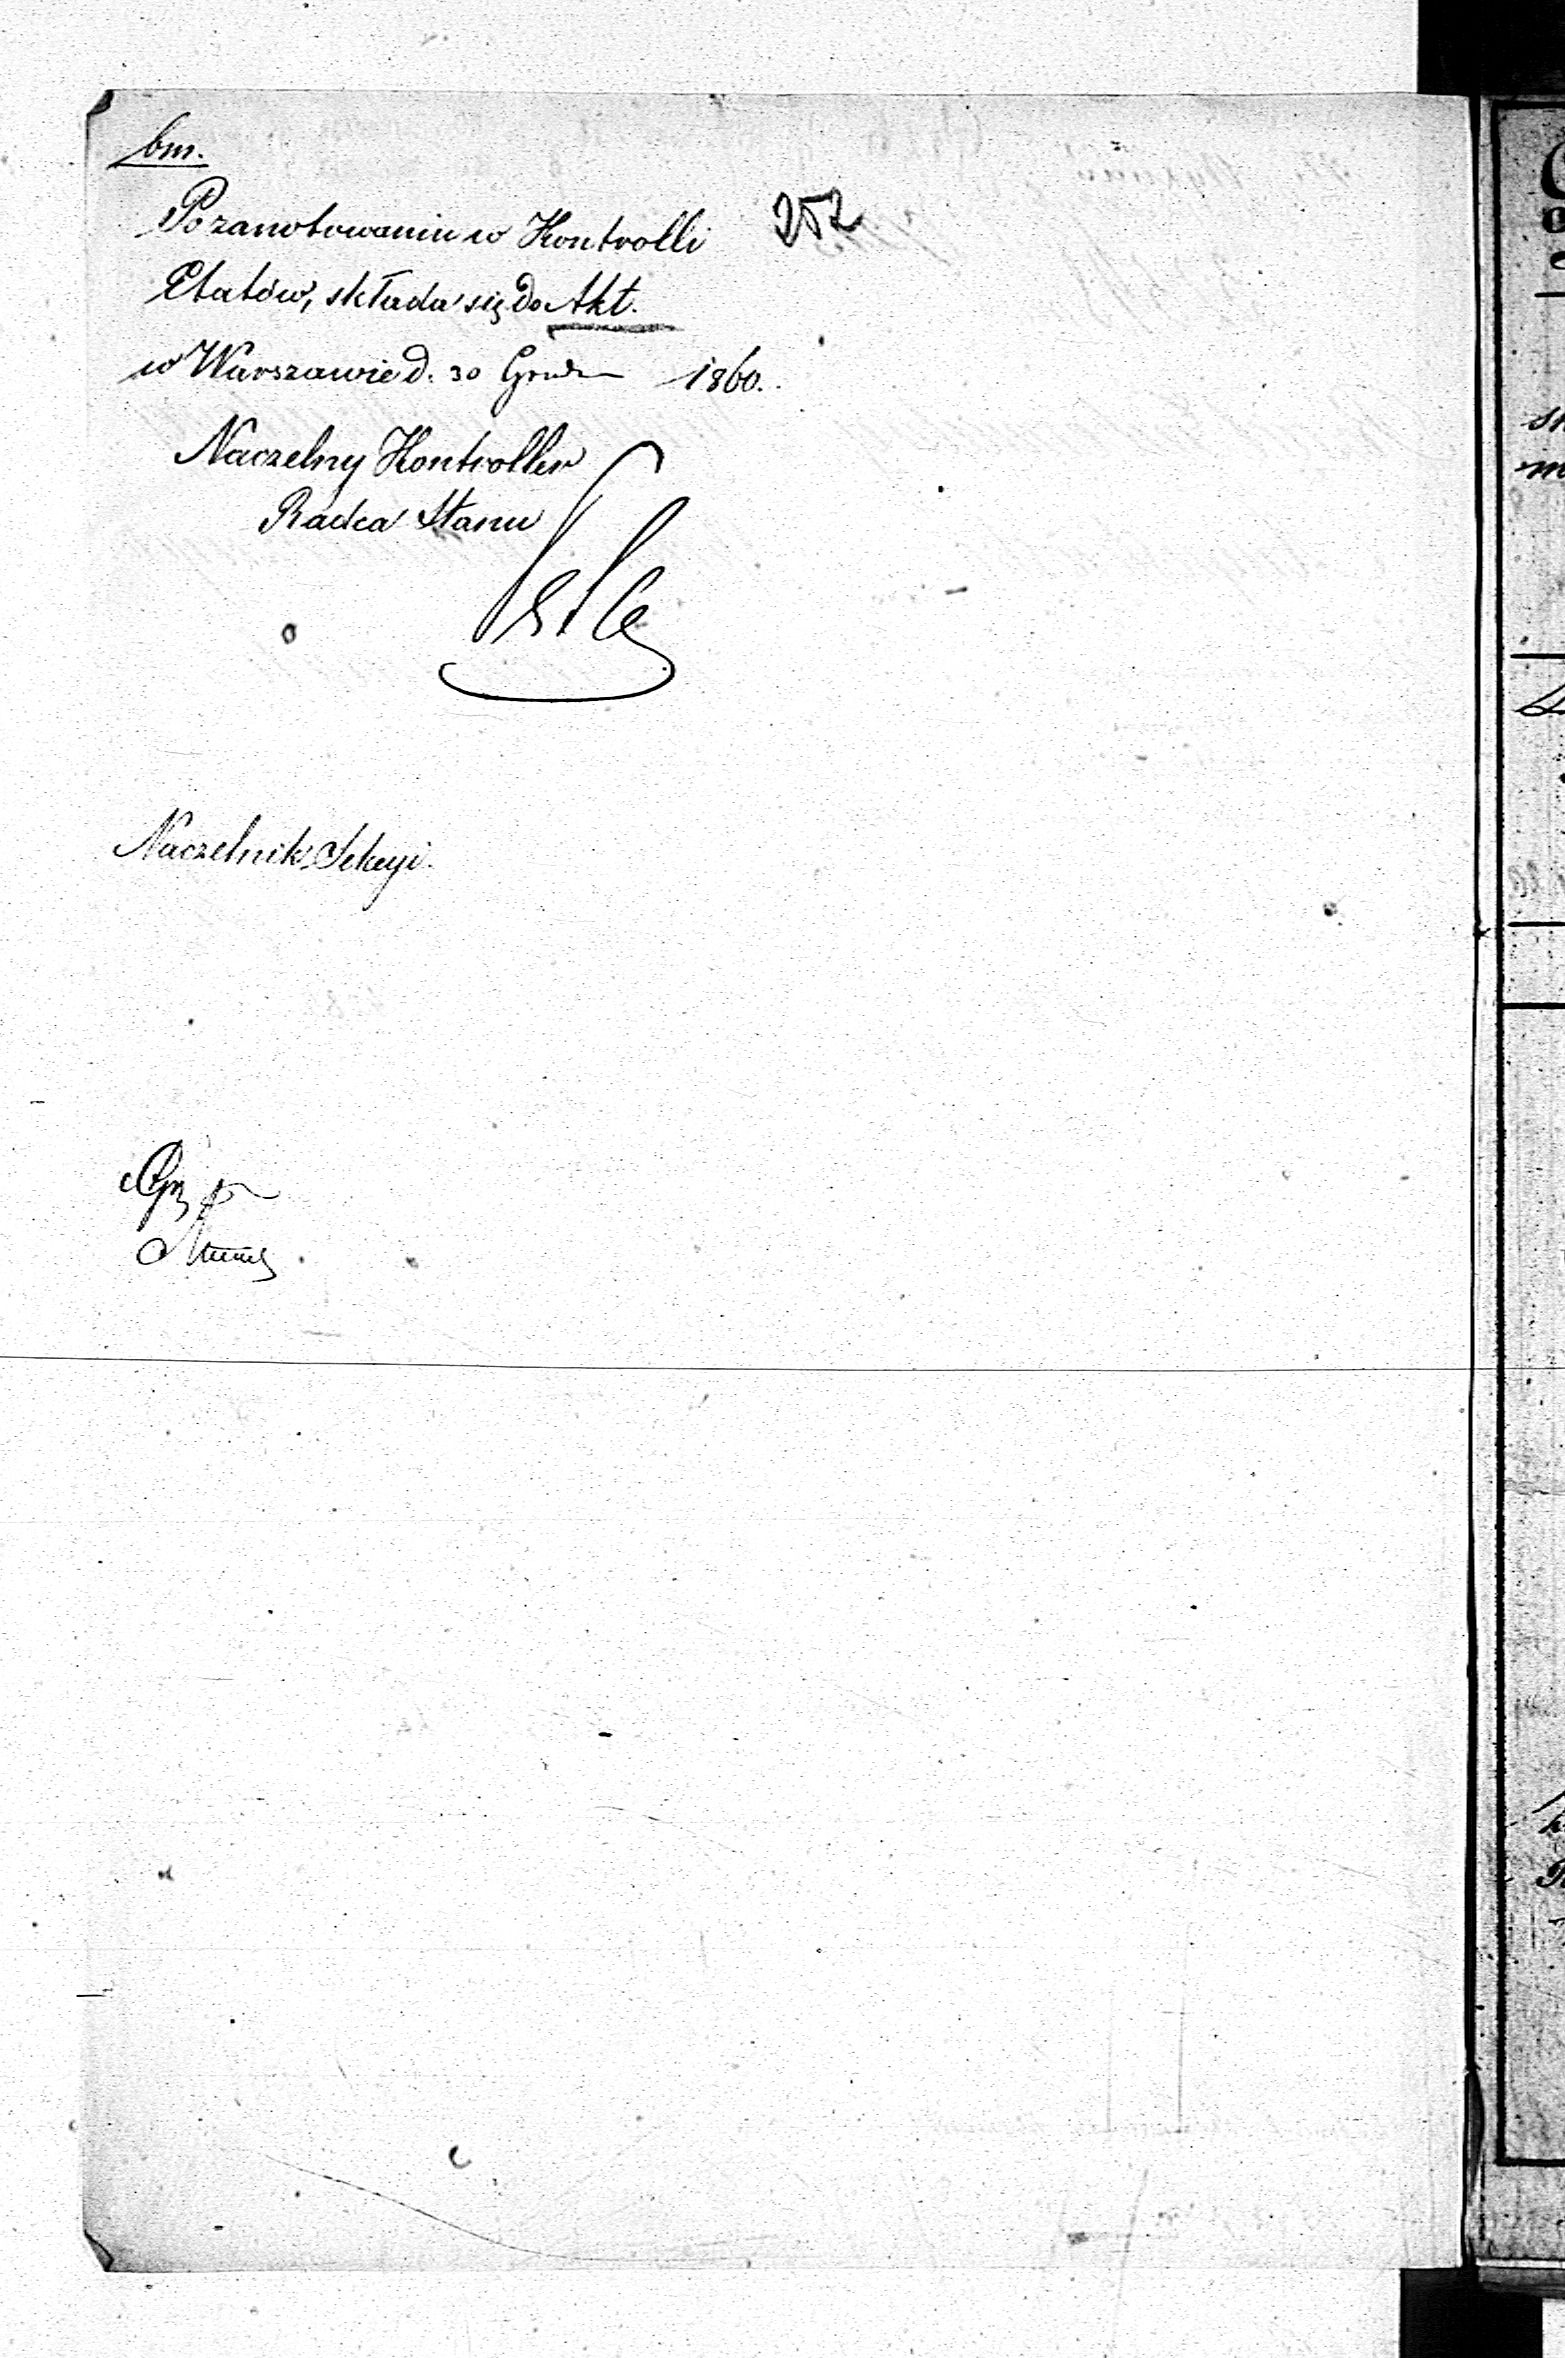 bm.
Po zanotowaniu w Kontrolli 252
Etatów, składa się do Akt.
w Warszawie d. 30 Grudn 1860.
Naczelny Kontroller
Radca Stanu
Naczelnik Sekcyi.